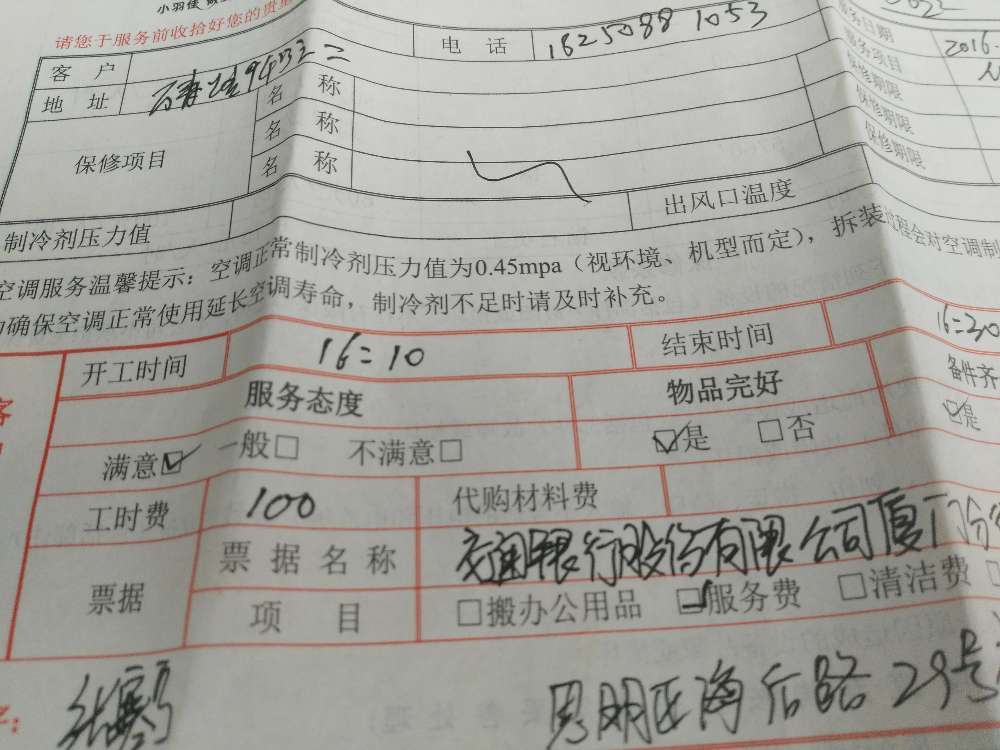 小羽佳
请您于服务前收拾好您的贵重
客 户 电 话 1625088 1053 服务日期 2016.
地 址 名 称 服务项目
保修项目 名 称 保修期限
名 称 保修期限
保修期限
制冷剂压力值 出风口温度
空调服务温馨提示：空调正常制冷剂压力值为0.45mpa（视环境、机型而定），拆装过程会对空调制
确保空调正常使用延长空调寿命，制冷剂不足时请及时补充。
开工时间 16:10 结束时间 16:30
服务态度 物品完好 备件齐
满意☑ 一般□ 不满意□ ☑是 □否 ☑是
工时费 100 代购材料费
票据 票据名称 交通银行股份有限公司厦门分
项 目 □搬办公用品 ☑服务费 □清洁费
思明区海后路29号